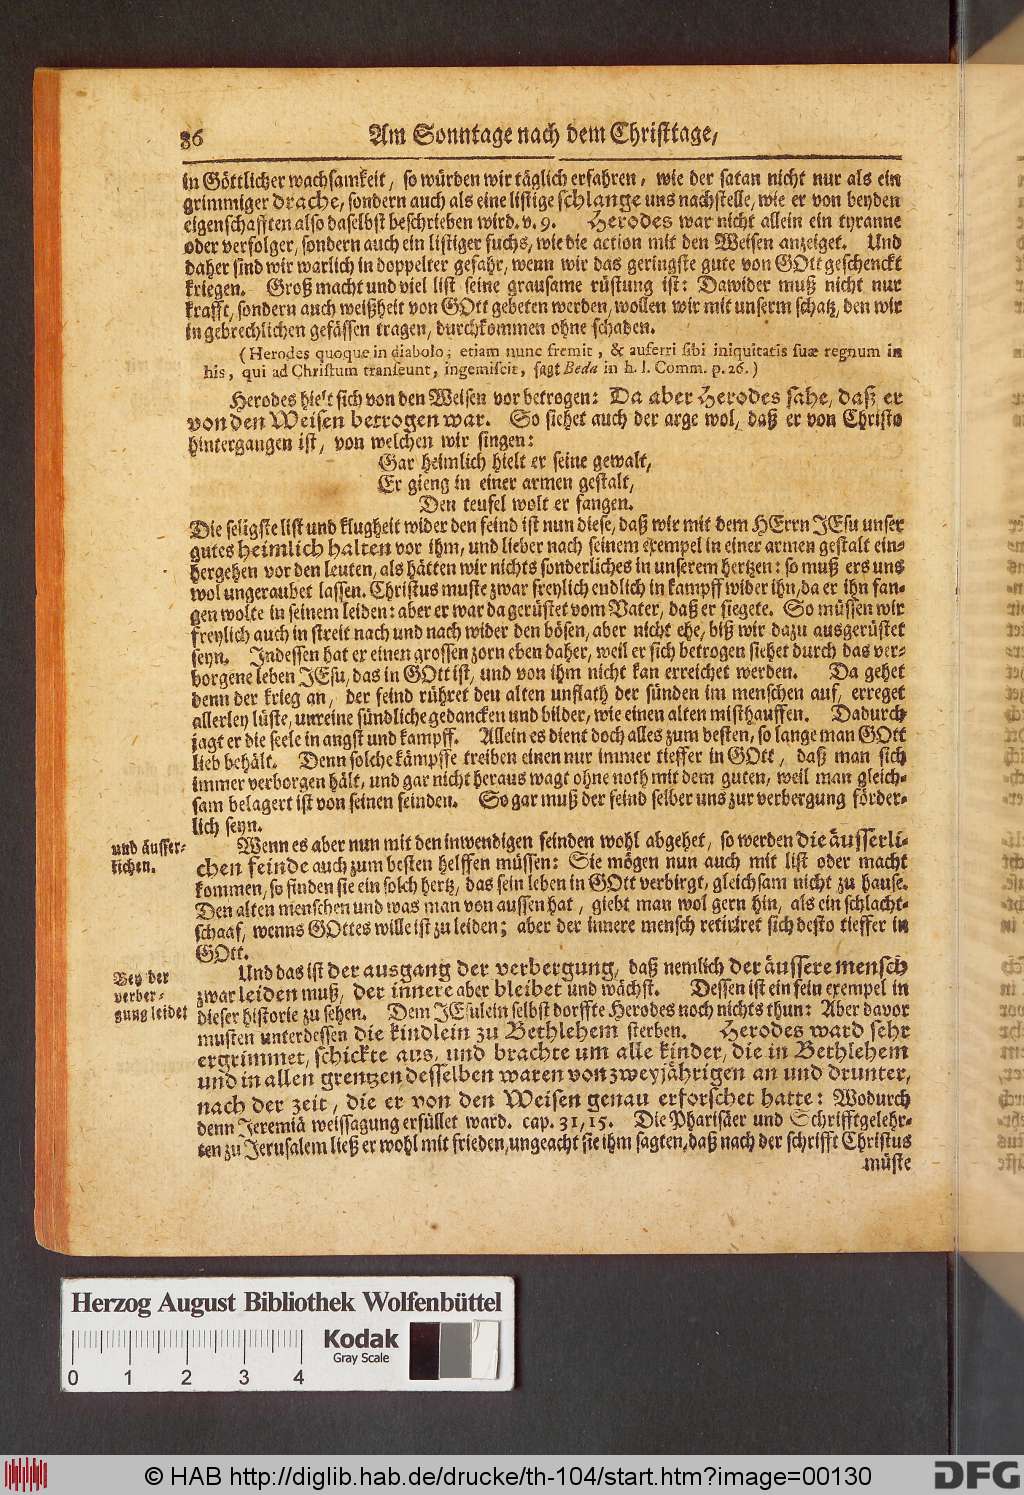 86 Am Sonntage nach dem Christtage,
in Göttlicher wachsamkeit, so würden wir täglich erfahren, wie der satan nicht nur als ein
grimmiger drache, sondern auch als eine listige schlange uns nachstelle, wie er von beyden
eigenschafften also daselbst beschrieben wird. v. 9. Herodes war nicht allein ein tyranne
oder verfolger, sondern auch ein listiger fuchs, wie die action mit den Weisen anzeiget. Und
daher sind wir warlich in doppelter gefahr, wenn wir das geringste gute von GOtt geschenckt
kriegen. Groß macht und viel list seine grausame rüstung ist: Dawider muß nicht nur
krafft, sondern auch weißheit von GOtt gebeten werden, wollen wir mit unserm schatz, den wir
in gebrechlichen gefässen tragen, durchkommen ohne schaden.
(Herodes quoque in diabolo; etiam nunc fremit, & auferri sibi iniquitatis suæ regnum in
his, qui ad Christum transeunt, ingemiscit, sagt Beda in h. l. Comm. p. 26.)
Herodes hielt sich von den Weisen vor betrogen: Da aber Herodes sahe, daß er
von den Weisen betrogen war. So siehet auch der arge wol, daß er von Christo
hintergangen ist, von welchen wir singen:
Gar heimlich hielt er seine gewalt,
Er gieng in einer armen gestalt,
Den teufel wolt er fangen.
Die seligste list und klugheit wider den feind ist nun diese, daß wir mit dem HErrn JEsu unser
gutes heimlich halten vor ihm, und lieber nach seinem exempel in einer armen gestalt ein-
hergehen vor den leuten, als hätten wir nichts sonderliches in unserem hertzen: so muß ers uns
wol ungeraubet lassen. Christus muste zwar freylich endlich in kampff wider ihn, da er ihn fan-
gen wolte in seinem leiden: aber er war da gerüstet vom Vater, daß er siegete. So müssen wir
freylich auch in streit nach und nach wider den bösen, aber nicht ehe, biß wir dazu ausgerüstet
seyn. Indessen hat er einen grossen zorn eben daher, weil er sich betrogen siehet durch das ver-
borgene leben JEsu, das in GOtt ist, und von ihm nicht kan erreichet werden. Da gehet
denn der krieg an, der feind rühret den alten unflath der sünden im menschen auf, erreget
allerley lüste, unreine sündliche gedancken und bilder, wie einen alten misthauffen. Dadurch
jagt er die seele in angst und kampff. Allein es dient doch alles zum besten, so lange man GOtt
lieb behält. Denn solche kämpffe treiben einen nur immer tieffer in GOtt, daß man sich
immer verborgen hält, und gar nicht heraus wagt ohne noth mit dem guten, weil man gleich-
sam belagert ist von seinen feinden. So gar muß der feind selber uns zur verbergung förder-
lich seyn.
und äusser-
lichen.
Wenn es aber nun mit den inwendigen feinden wohl abgehet, so werden die äusserli-
chen feinde auch zum besten helffen müssen: Sie mögen nun auch mit list oder macht
kommen, so finden sie ein solch hertz, das sein leben in GOtt verbirgt, gleichsam nicht zu hause.
Den alten menschen und was man von aussen hat, giebt man wol gern hin, als ein schlacht-
schaaf, wenns GOttes wille ist zu leiden; aber der innere mensch retiriret sich desto tieffer in
GOtt.
Bey der
verber-
gung leidet
Und das ist der ausgang der verbergung, daß nemlich der äussere mensch
zwar leiden muß, der innere aber bleibet und wächst. Dessen ist ein fein exempel in
dieser historie zu sehen. Dem JEsulein selbst dorffte Herodes noch nichts thun: Aber davor
musten unterdessen die kindlein zu Bethlehem sterben. Herodes ward sehr
ergrimmet, schickte aus, und brachte um alle kinder, die in Bethlehem
und in allen grentzen desselben waren von zweyjährigen an und drunter,
nach der zeit, die er von den Weisen genau erforschet hatte: Wodurch
denn Jeremiä weissagung erfüllet ward. cap. 31, 15. Die Pharisäer und Schrifftgelehr-
ten zu Jerusalem ließ er wohl mit frieden, ungeacht sie ihm sagten, daß nach der schrifft Christus
müste
Herzog August Bibliothek Wolfenbüttel
Kodak
Gray Scale
0 1 2 3 4
© HAB http://diglib.hab.de/drucke/th-104/start.htm?image=00130
DFG